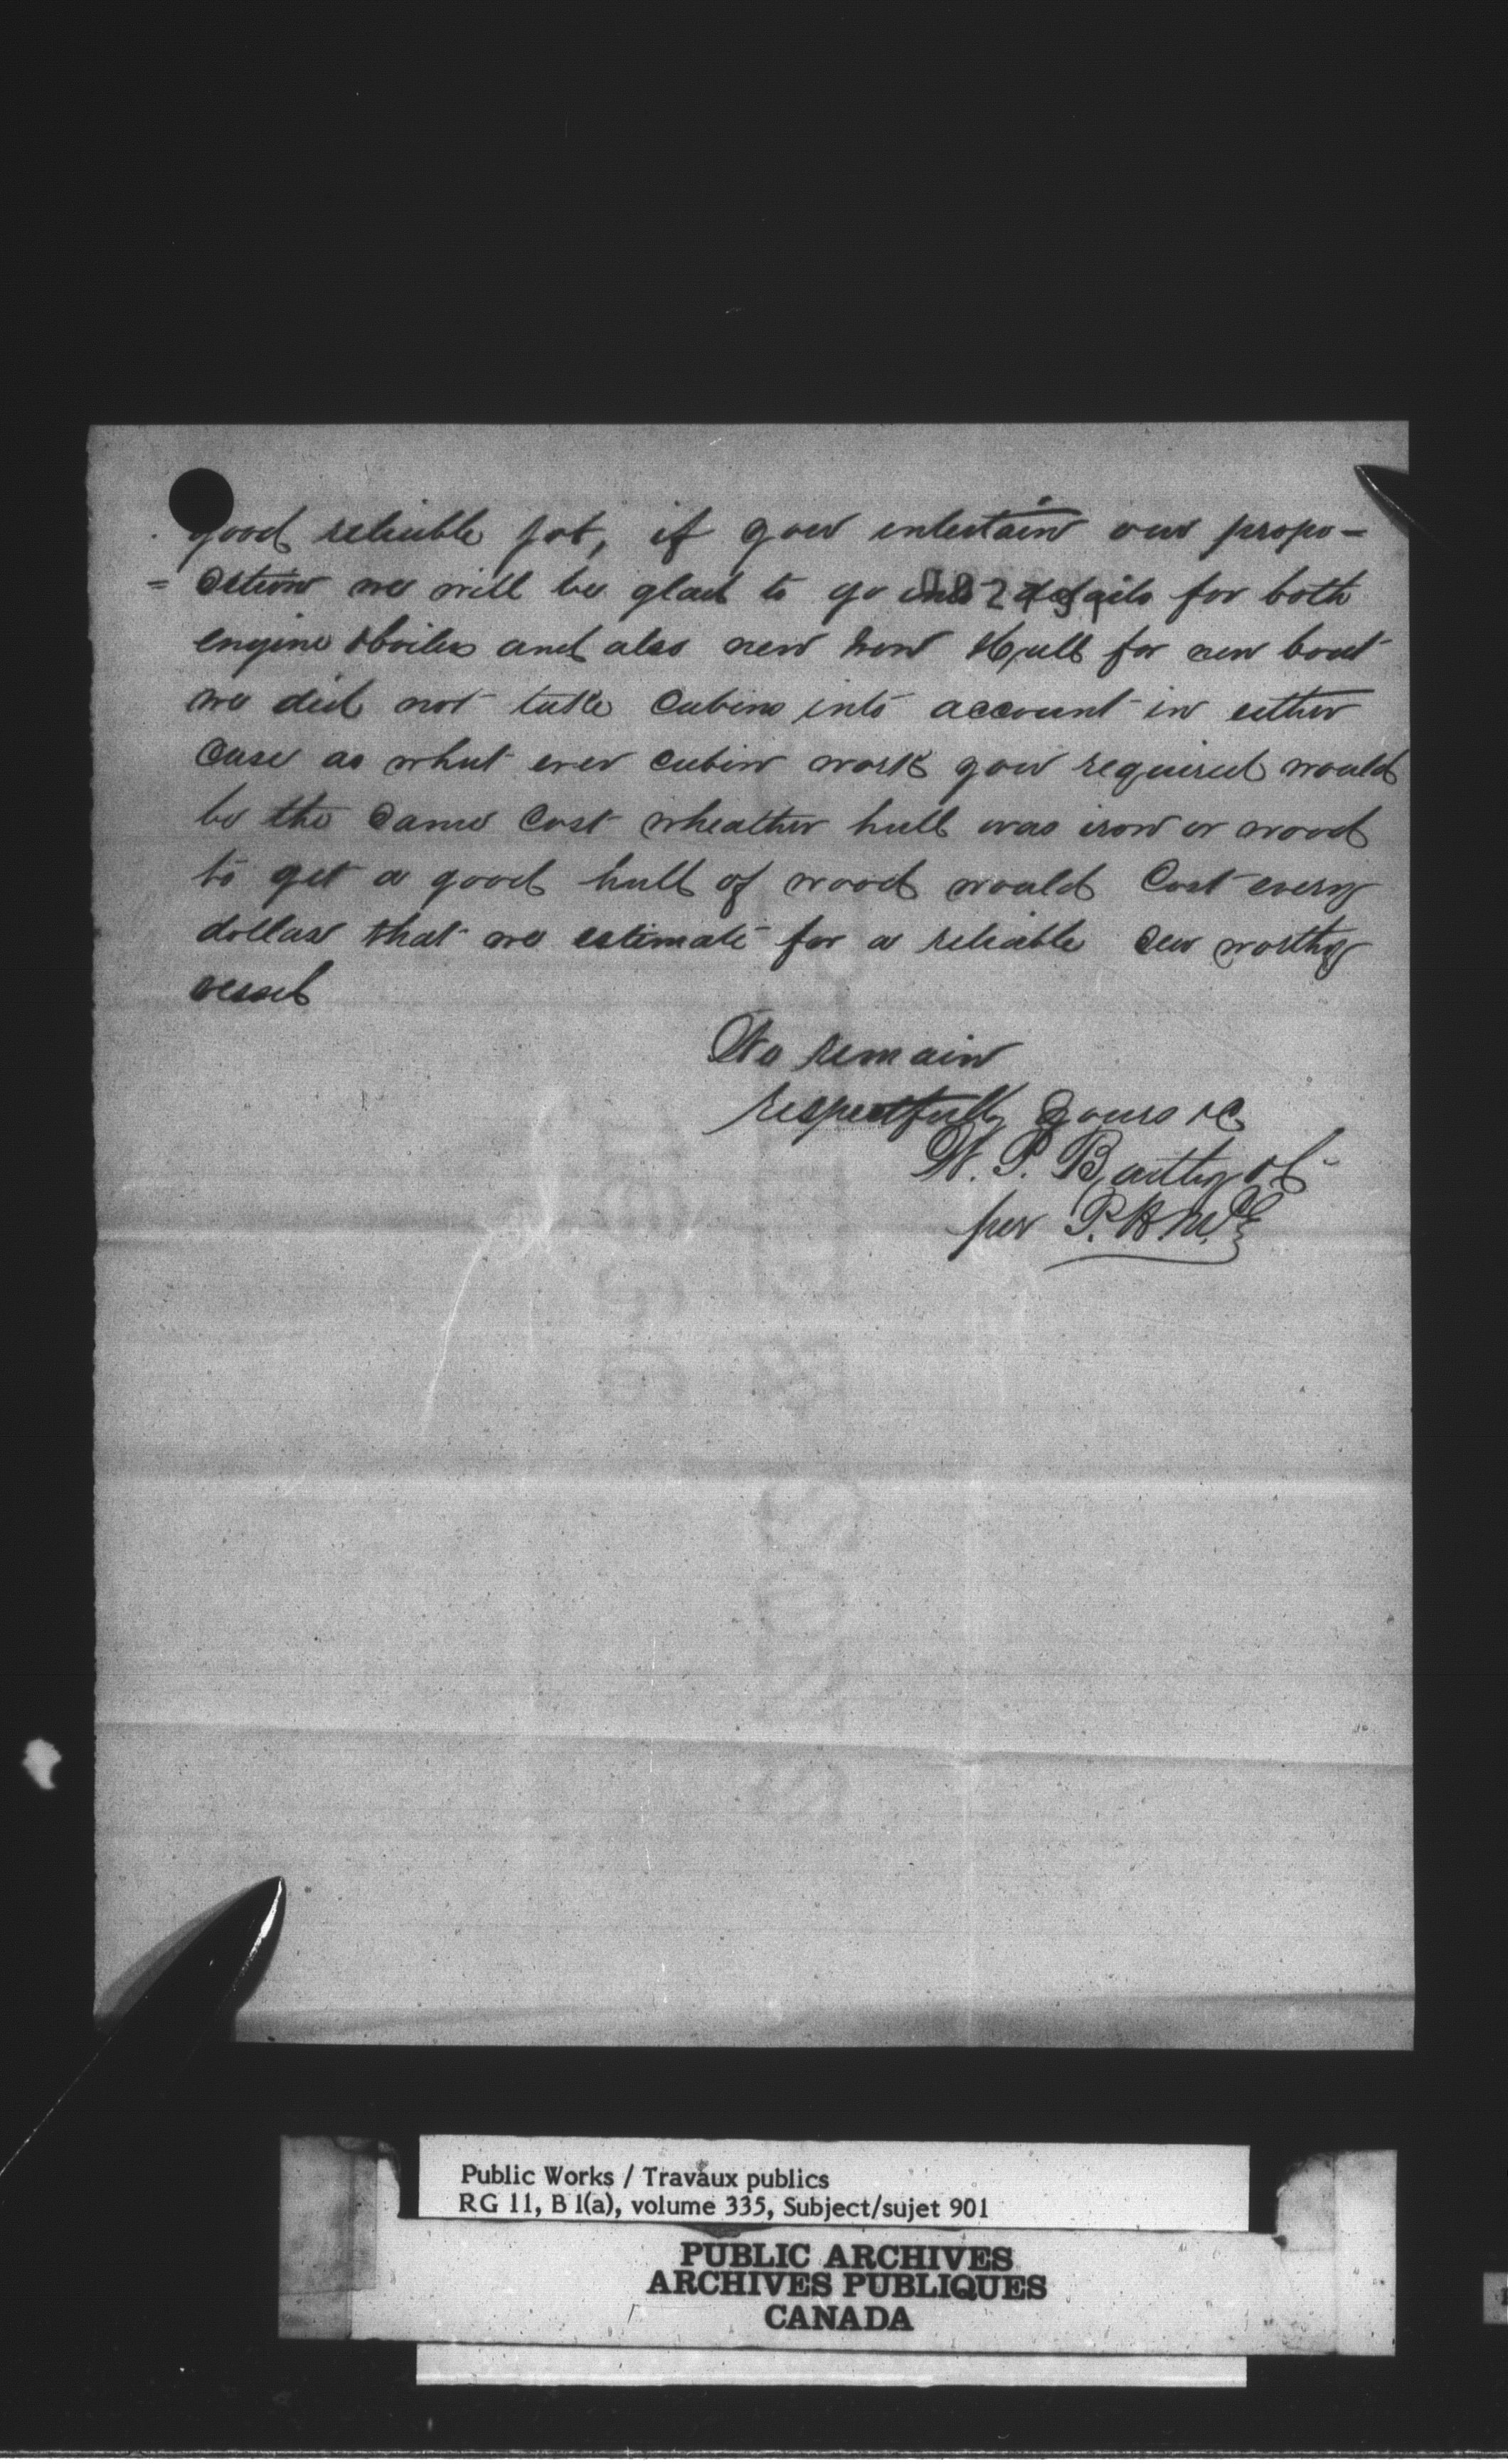 good reliable job, if you entertain our propo-
=sition we will be glad to go into details for both
engine & boiler and also new Iron Hull for new boat
we did not take cabins into account in either
case as what ever cabin work you required would
be the same cost wheather hull was iron or wood
to get a good hull of wood would cost every
dollar that we estimate for a reliable sea worthy
vessel
We remain
respectfully yours &c
W. P. Bartley & Co
per P. H. McE
Public Works / Travaux publics
RG 11, B 1(a), volume 335, Subject/sujet 901
PUBLIC ARCHIVES
ARCHIVES PUBLIQUES
CANADA